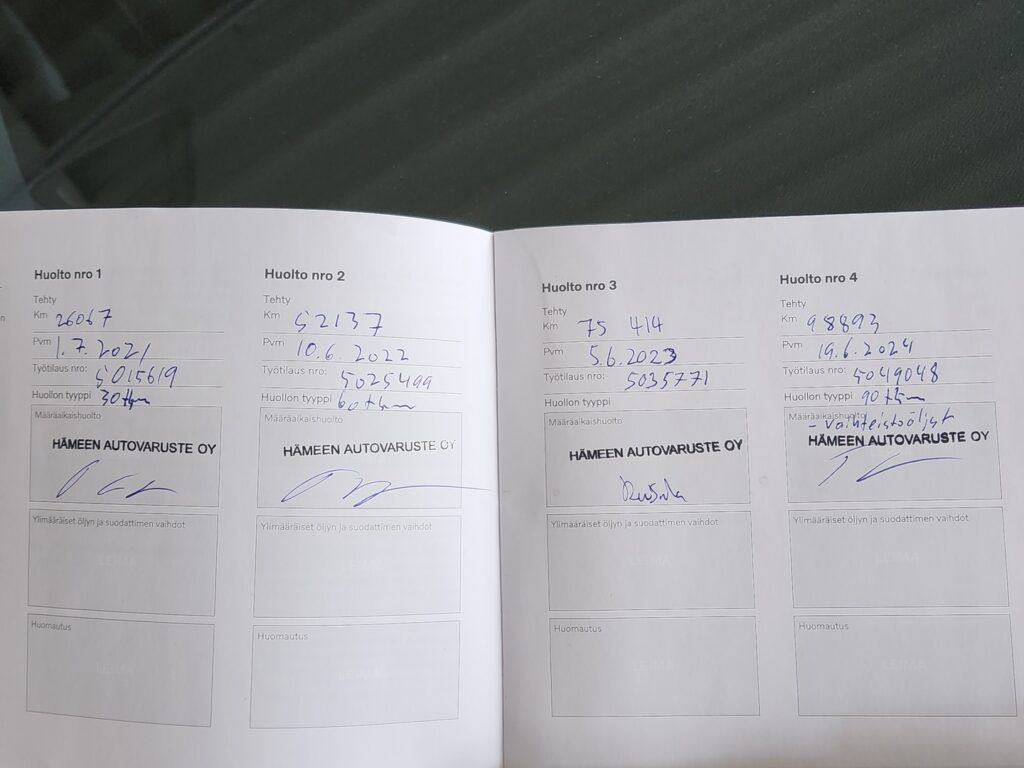 Huolto nro 1
Tehty
Km 26067
Pvm 1.7.2021
Työtilaus nro: 5015619
Huollon tyyppi 30tkm
Määräaikaishuolto
HÄMEEN AUTOVARUSTE OY
Ylimääräiset öljyn ja suodattimen vaihdot
LEIMA
Huomautus
LEIMA
Huolto nro 2
Tehty
Km 52137
Pvm 10.6.2022
Työtilaus nro: 5025499
Huollon tyyppi 60tkm
Määräaikaishuolto
HÄMEEN AUTOVARUSTE OY
Ylimääräiset öljyn ja suodattimen vaihdot
LEIMA
Huomautus
LEIMA
Huolto nro 3
Tehty
Km 75 414
Pvm 5.6.2023
Työtilaus nro: 5035771
Huollon tyyppi
Määräaikaishuolto
HÄMEEN AUTOVARUSTE OY
Ylimääräiset öljyn ja suodattimen vaihdot
LEIMA
Huomautus
LEIMA
Huolto nro 4
Tehty
Km 98893
Pvm 19.6.2024
Työtilaus nro: 5049048
Huollon tyyppi 90tkm
Määräaikaishuolto
- Vaihteistoöljyt
HÄMEEN AUTOVARUSTE OY
Ylimääräiset öljyn ja suodattimen vaihdot
LEIMA
Huomautus
LEIMA